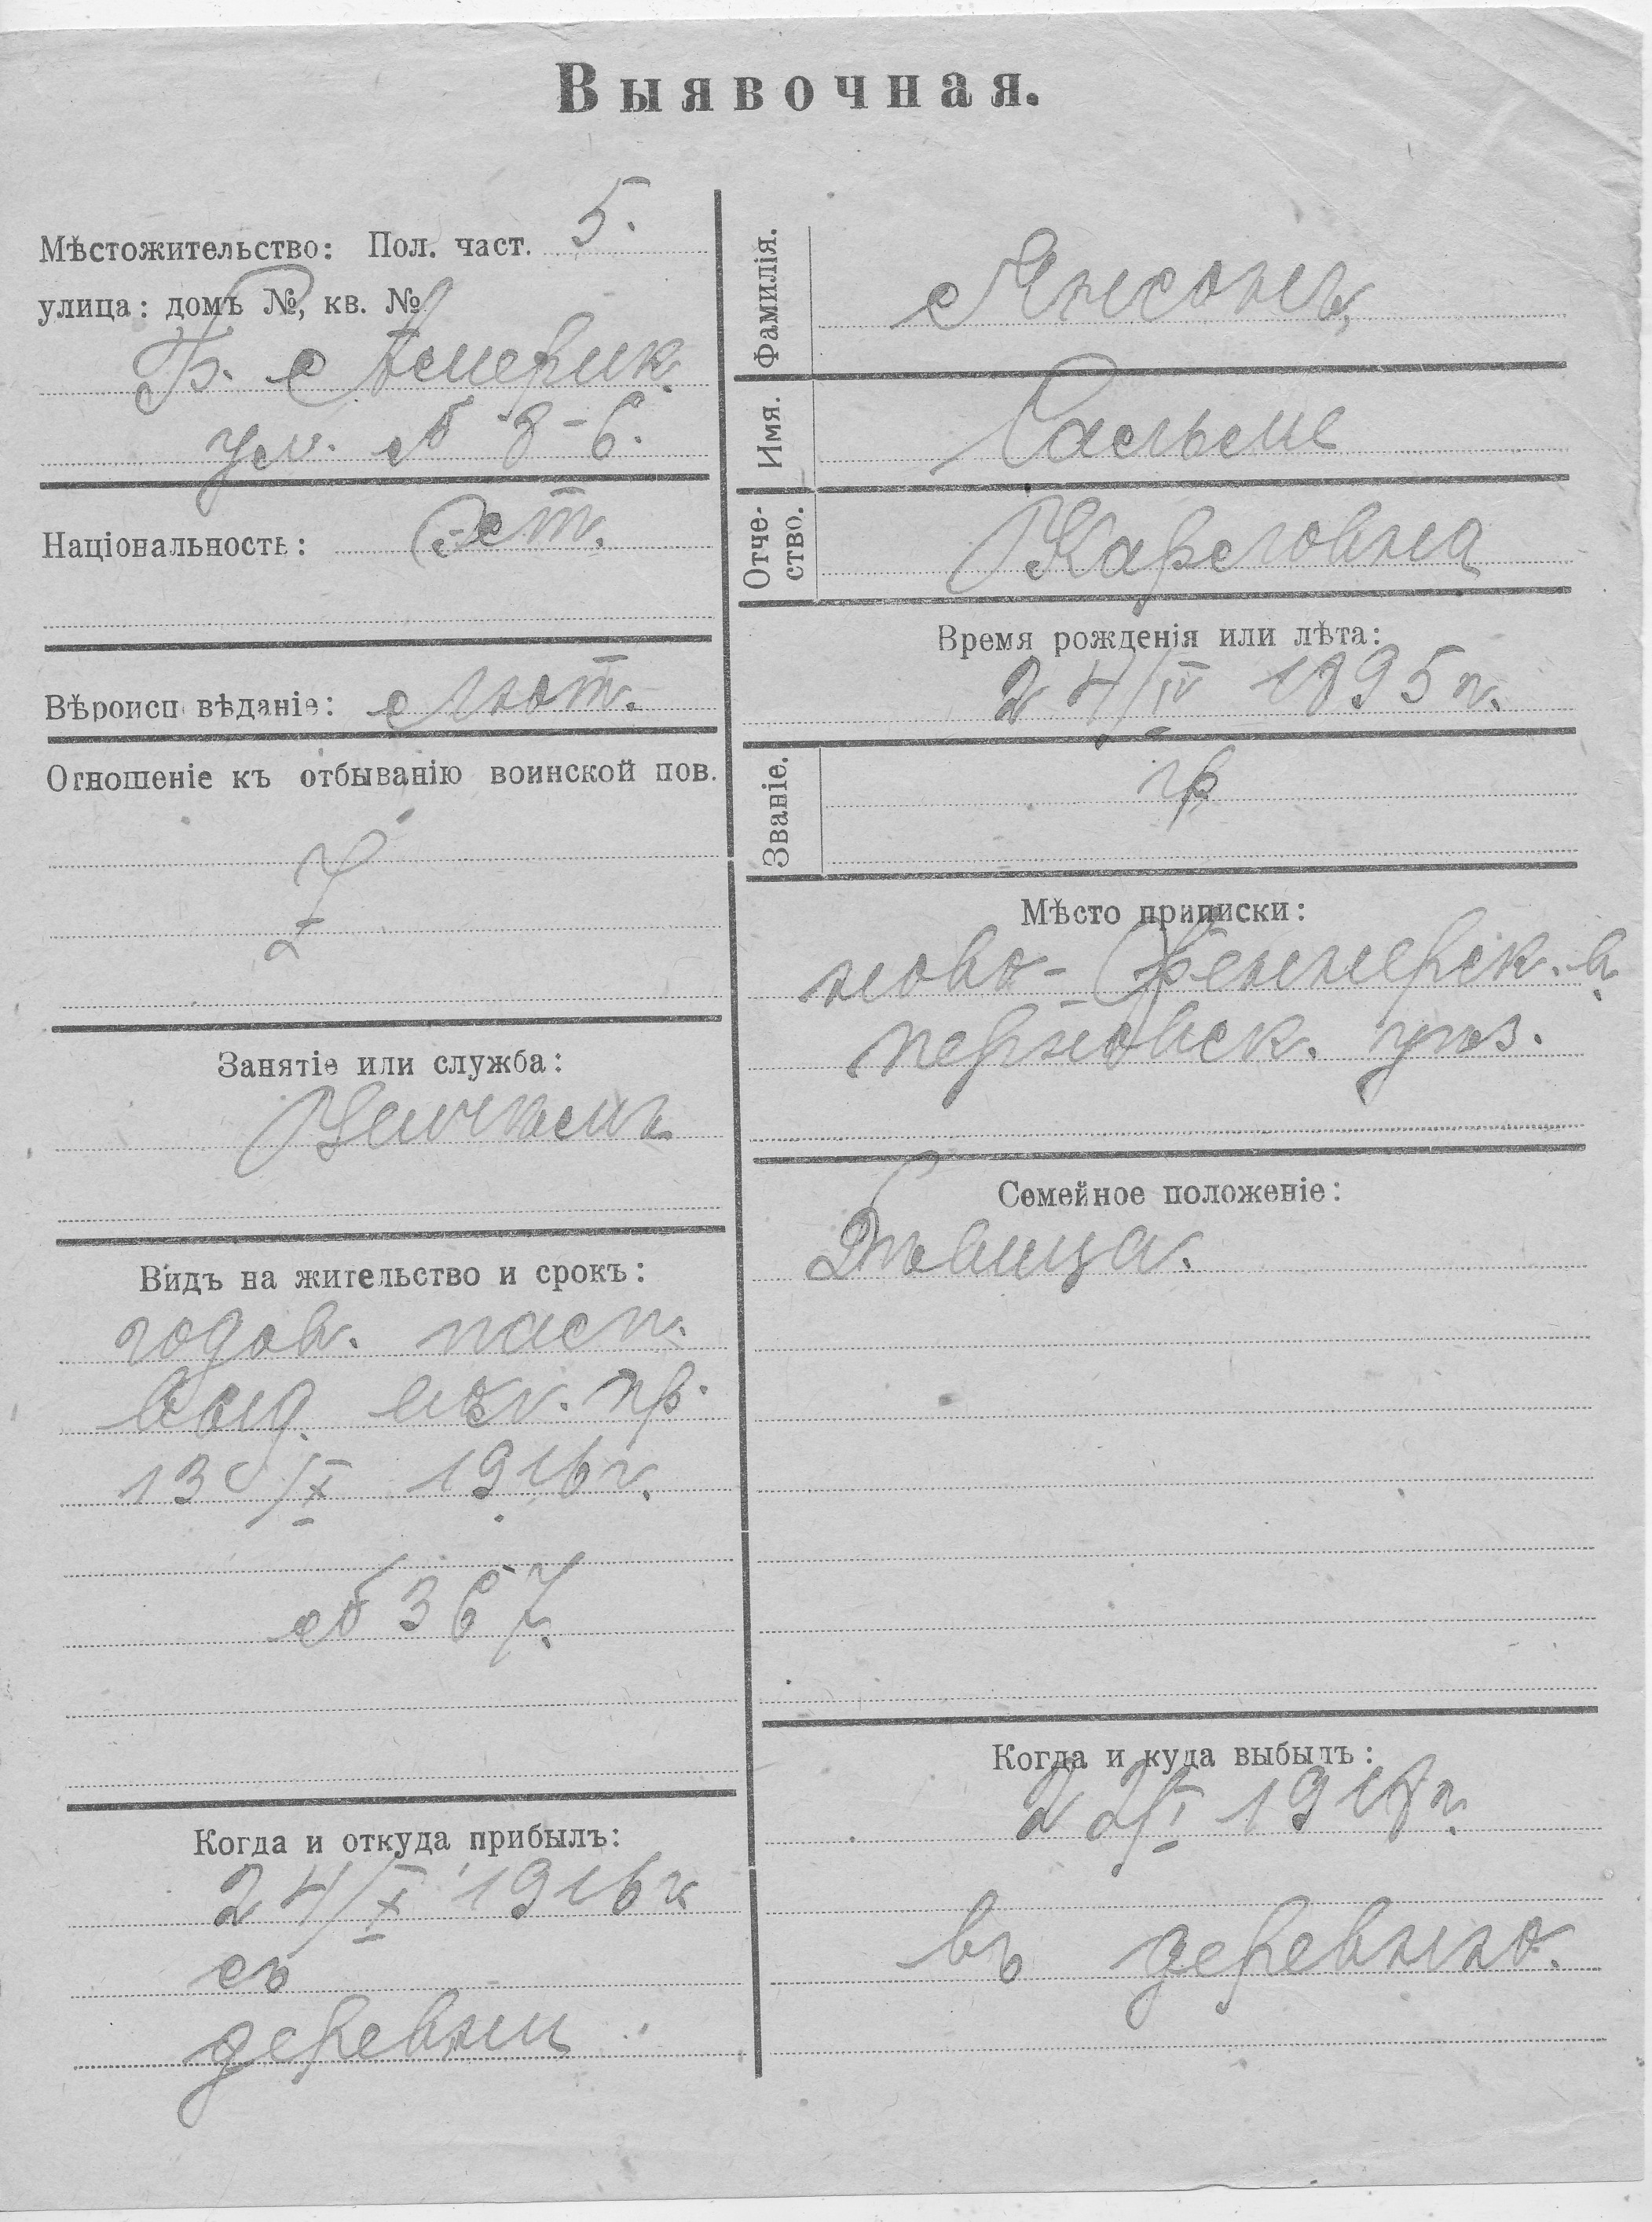 Выявочная.
Мѣстожительство: Пол. част. 5.
улица: домъ №, кв. №
Б. Америк.
ул. № 8-6.
Національность: Эст.
Вѣроисп вѣданіе: Лют.
Отношеніе къ отбыванію воинской пов.
Занятіе или служба:
Видъ на жительство и срокъ:
годов. пасп.
выд. вол. пр.
13/IX 1916 г.
№ 367.
Когда и откуда прибылъ:
24/IX 1916 г
съ
деревни
Фамилія. Янсонъ,
Имя. Сальме
Отче-
ство. Карловна
Время рожденія или лѣта:
24/IV 1895 г.
Званіе. кр
Мѣсто приписки:
ново-Феннерск. в.
перновск. уѣз.
Семейное положеніе:
Дѣвица.
Когда и куда выбылъ:
22/I 1917 г.
въ деревню.